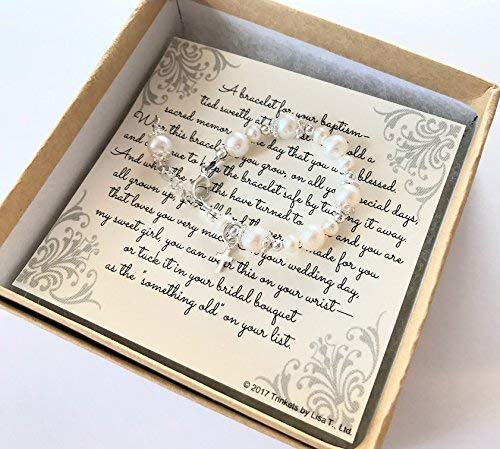 A bracelet for your baptism—
tied sweetly at old a
sacred memor day that you blessed.
this bracelet you grow, on all yo special days,
and to the bracelet safe by tucking it away.
And w have turned to and you are
all grown up,
that loves you very muc your wedding day,
my sweet girl, you can w this on your wrist—
or tuck it in your bridal bouquet
as the "something old" on your list.
© 2017 Trinkets by Lisa T., Ltd.